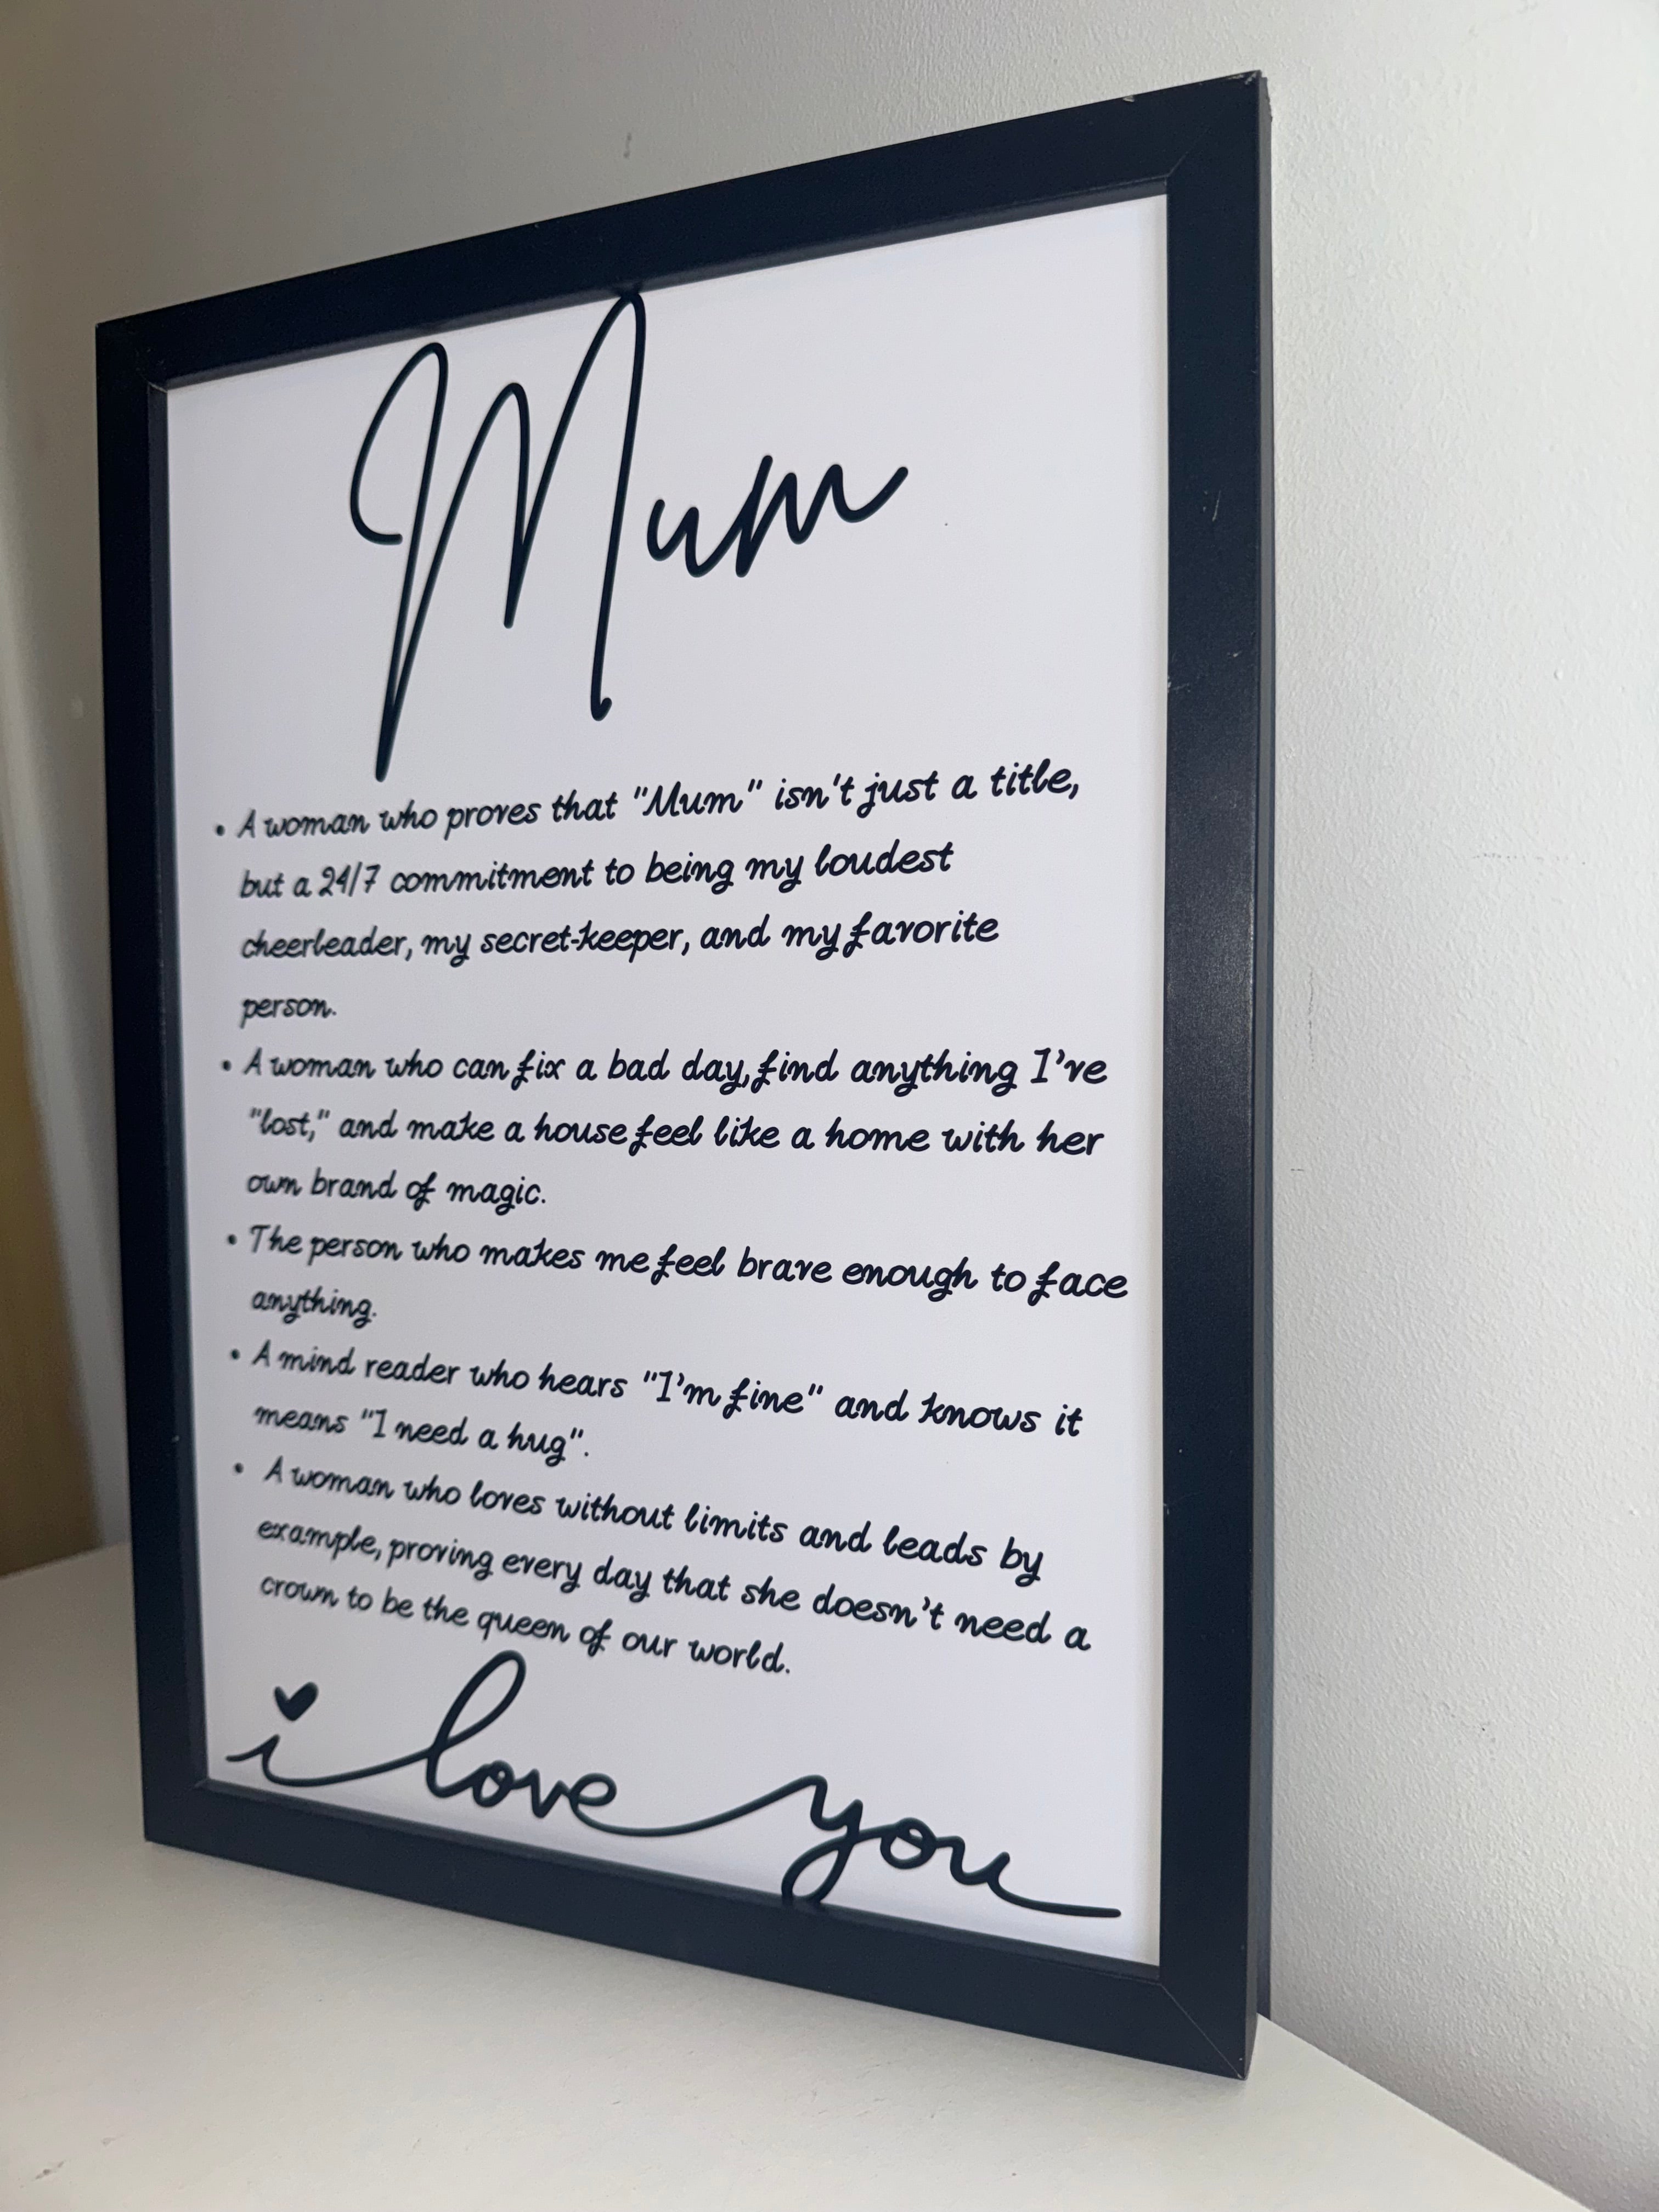 Mum
• A woman who proves that "Mum" isn't just a title,
but a 24/7 commitment to being my loudest
cheerleader, my secret-keeper, and my favorite
person.
• A woman who can fix a bad day, find anything I've
"lost," and make a house feel like a home with her
own brand of magic.
• The person who makes me feel brave enough to face
anything.
• A mind reader who hears "I'm fine" and knows it
means "I need a hug".
• A woman who loves without limits and leads by
example, proving every day that she doesn't need a
crown to be the queen of our world.
i love you